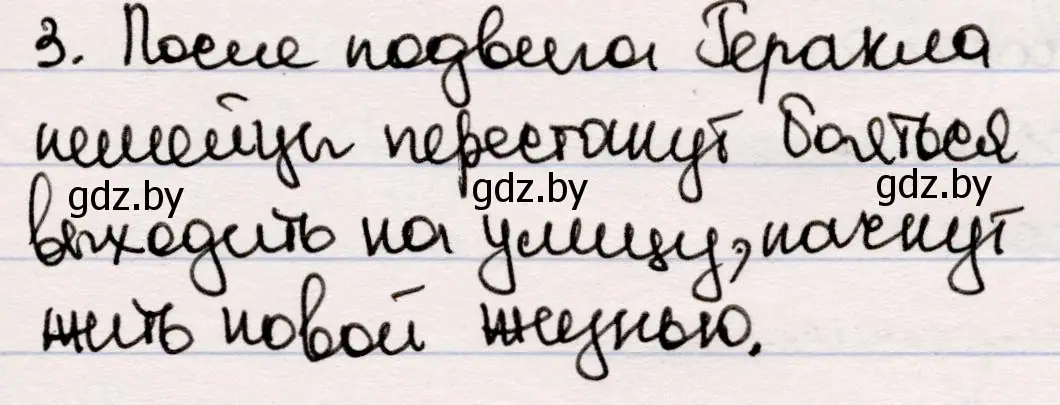 3. После подвига Геракла
немейцы перестанут бояться
gdz.by gdz.by gdz.by
выходить на улицу, начнут
жить новой жизнью.